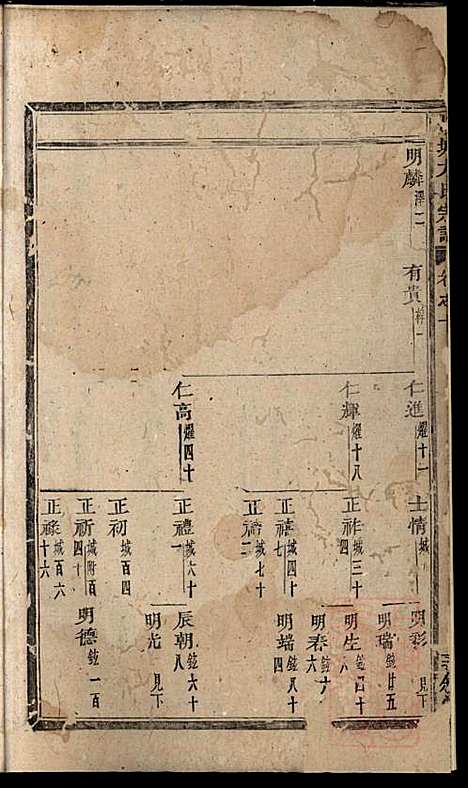 明麟澤二
有貴梓一
仁進耀十一
仁輝耀十八
仁高耀四十
士情城
正祚城三十四
正禧城四十七
正禮城六十一
正初城百四
正祈城附百四十
正祿城百六十六
明彩見下
明瑞鉉廿五
明生鉉四十八
明春鉉六
明端鉉八十四
辰朝鉉六十八
明光見下
明德鉉一百